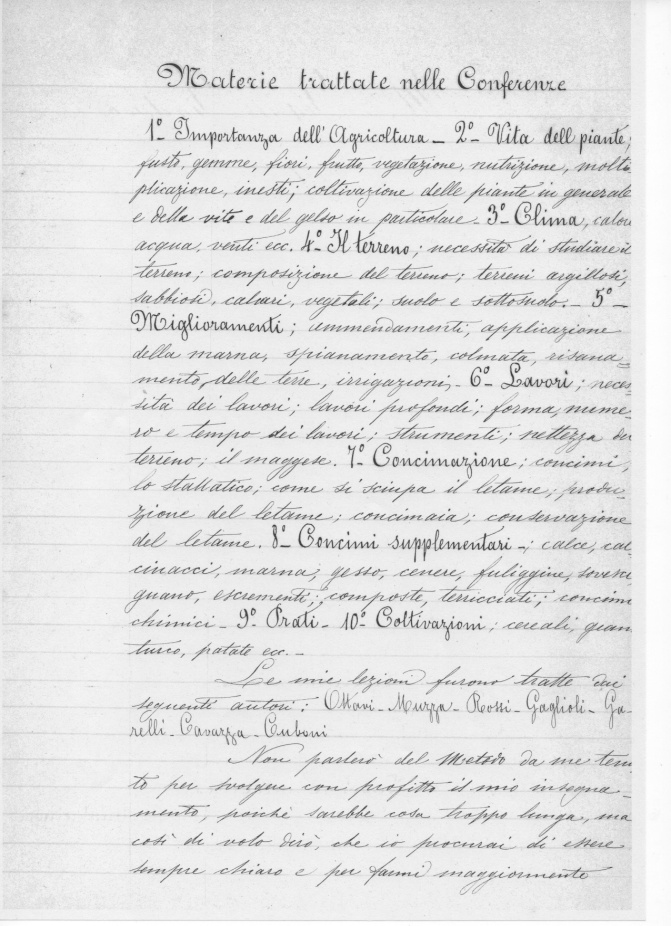 Materie trattate nelle Conferenze
1º Importanza dell'Agricoltura - 2º - Vita dell piante;
fusto, gemme, fiori, frutto, vegetazione, nutrizione, molti
plicazione, inesti; coltivazione delle piante in generale
e della vite e del gelso in particolare - 3º Clima, calore
acqua, venti ecc. 4º Il terreno; necessità di studiare il
terreno; composizione del terreno; terreni argillosi,
sabbiosi, calcari, vegetali; suolo e sottosuolo. - 5º -
Miglioramenti; ammendamenti, applicazione
della marna, spianamento, colmata, risana=
mento delle terre, irrigazioni, - 6º Lavori; neces=
sità dei lavori; lavori profondi; forma, nume-
ro e tempo dei lavori; strumenti; nettezza del
terreno; il maggese. 7º Concimazione; concimi,
lo stallatico; come si sciupa il letame; produ-
zione del letame; concimaia; conservazione
del letame. 8º Concimi supplementari -; calce, cal
cinacci, marna, gesso, cenere, fuliggine, sovesci
guano, escrementi; composte, terricciati; concimi
chimici - 9º Prati - 10º Coltivazioni; cereali, gran
turco, patate ecc. -
Le mie lezioni furono tratte dai
seguenti autori: Ottavi - Muzza - Rossi - Gaglioli - Ga-
relli - Cavazza - Cuboni
Non parlerò del Metodo da me tenu
to per svolgere con profitto il mio insegna-
mento, poichè sarebbe cosa troppo lunga, ma
così di volo dirò, che io procurai di essere
sempre chiaro e per farmi maggiormente